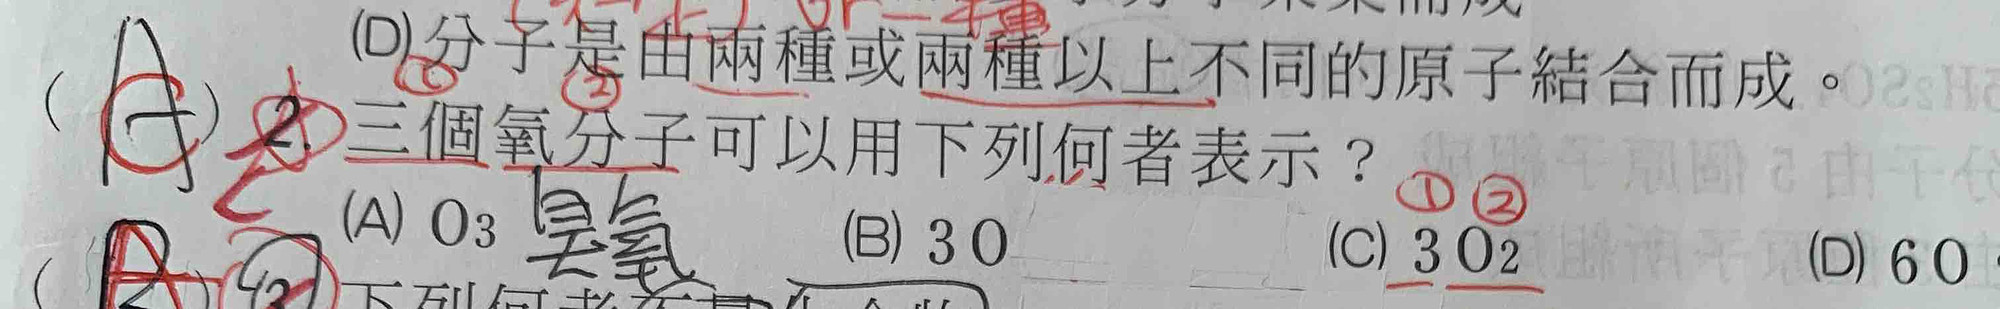 (D)分子是由兩種或兩種以上不同的原子結合而成。
(A) 2. 三個氧分子可以用下列何者表示？
① ②
(A) O3 臭氧 (B) 3O (C) 3O2 (D) 6O
① ②
C
下列何者